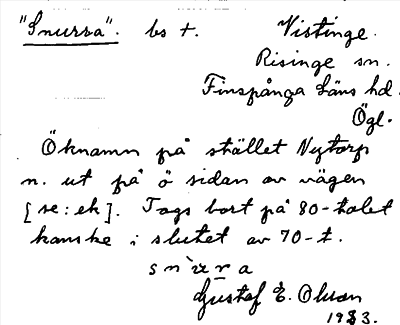 "Snurra". bs t. Vistinge.
Risinge sn.
Finspånga Läns hd.
Ögl.
Öknamn på stället Nytorp
n. ut på ö sidan av vägen
[se: ek]. Togs bort på 80-talet
kanske i slutet av 70-t.
snùra
Gustaf E. Olsson
1933.